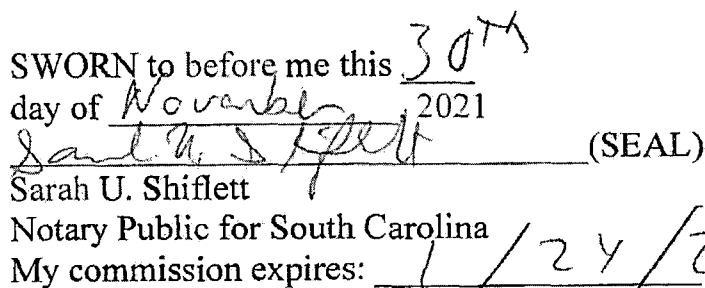 SWORN to before me this 30th
day of November, 2021
Sarah U. Shiflett (SEAL)
Sarah U. Shiflett
Notary Public for South Carolina
My commission expires: 1/24/2